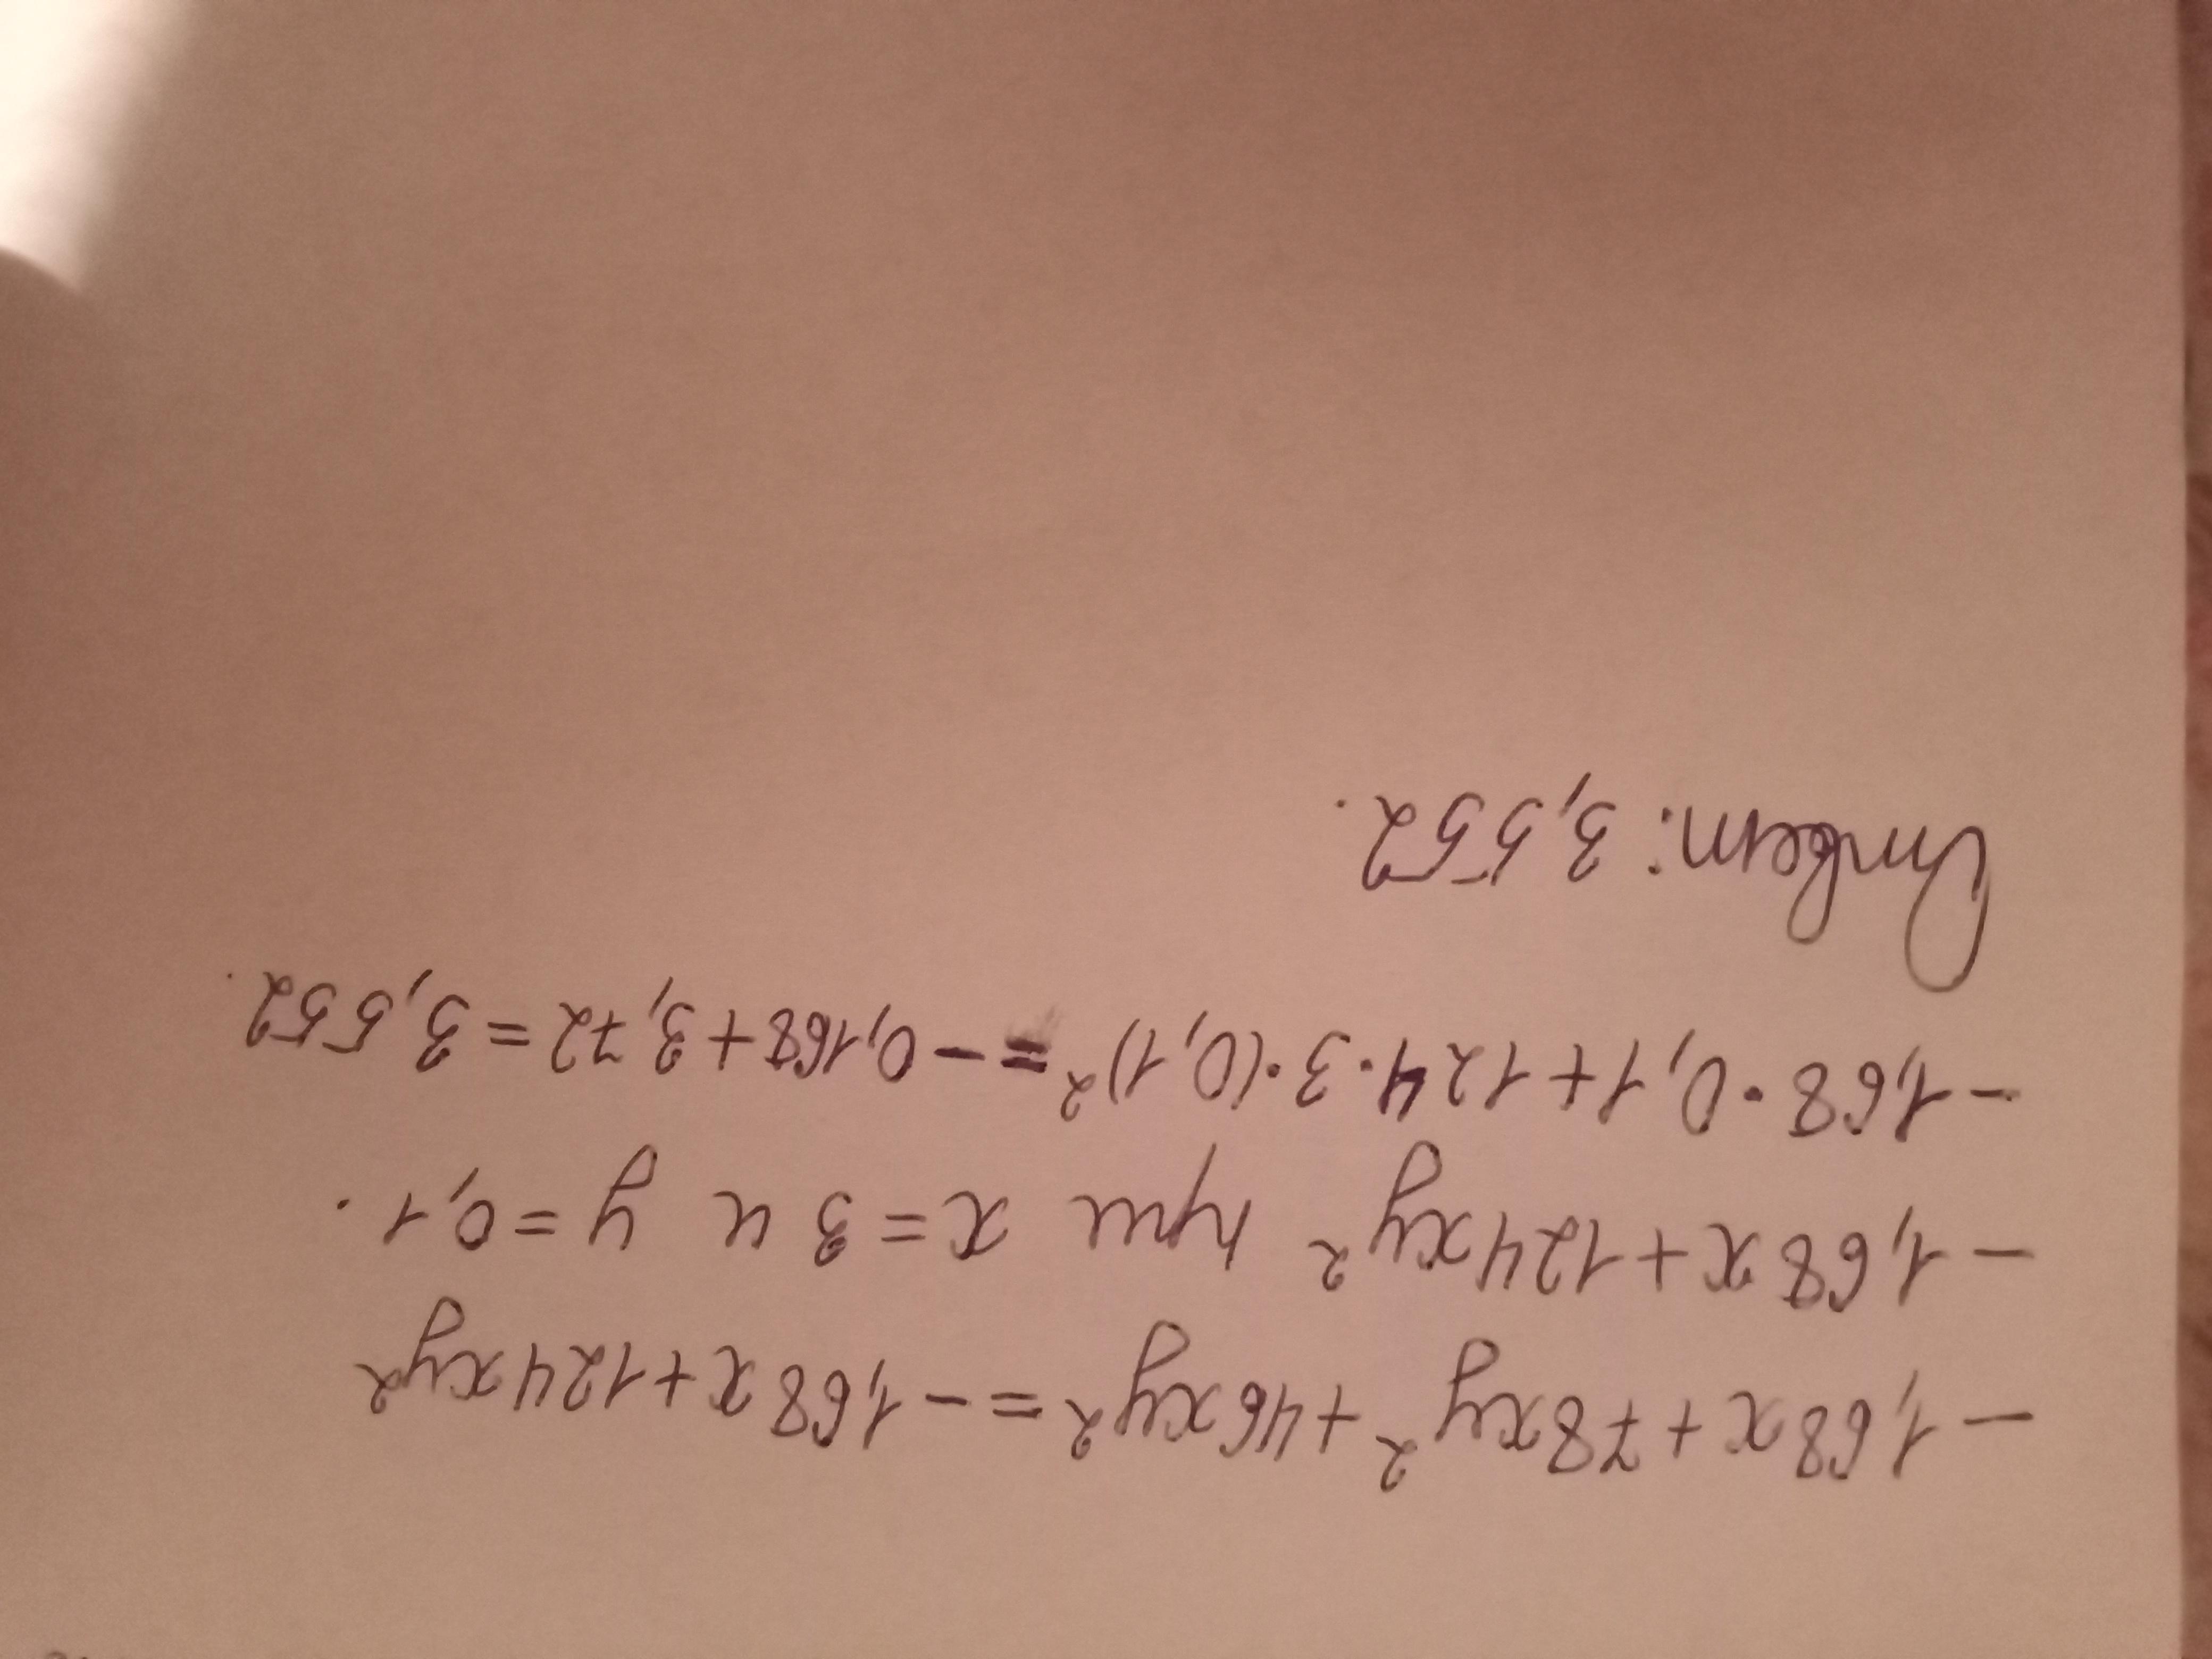 -1,68x+78xy²+46xy²=-1,68x+124xy²
-1,68x+124xy² при x=3 и y=0,1.
-1,68·0,1+124·3·(0,1)²=-0,168+3,72=3,552.
Ответ: 3,552.